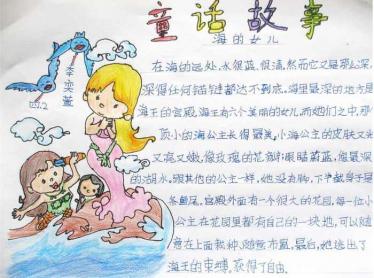 童话故事
海的女儿
李奕萱
四.2
在海的远处,水很蓝,很清,然而它又是那么深,
深得任何锚链都达不到底。海里最深的地方是
海王的宫殿,海王有六个美丽的女儿,而她们之中,那
顶小的海公主长得最美,小海公主的皮肤又光
又亮又嫩,像玫瑰的花瓣,眼睛蔚蓝,像最深
的湖水,跟其他的公主一样,她没有脚,下半截身子是
条鱼尾,宫殿外面有一个很大的花园,每一位小
公主在花园里都有自己的一块地,可以随
意在上面栽种,随意布置,最后,她逃出了
海王的束缚,获得了自由.